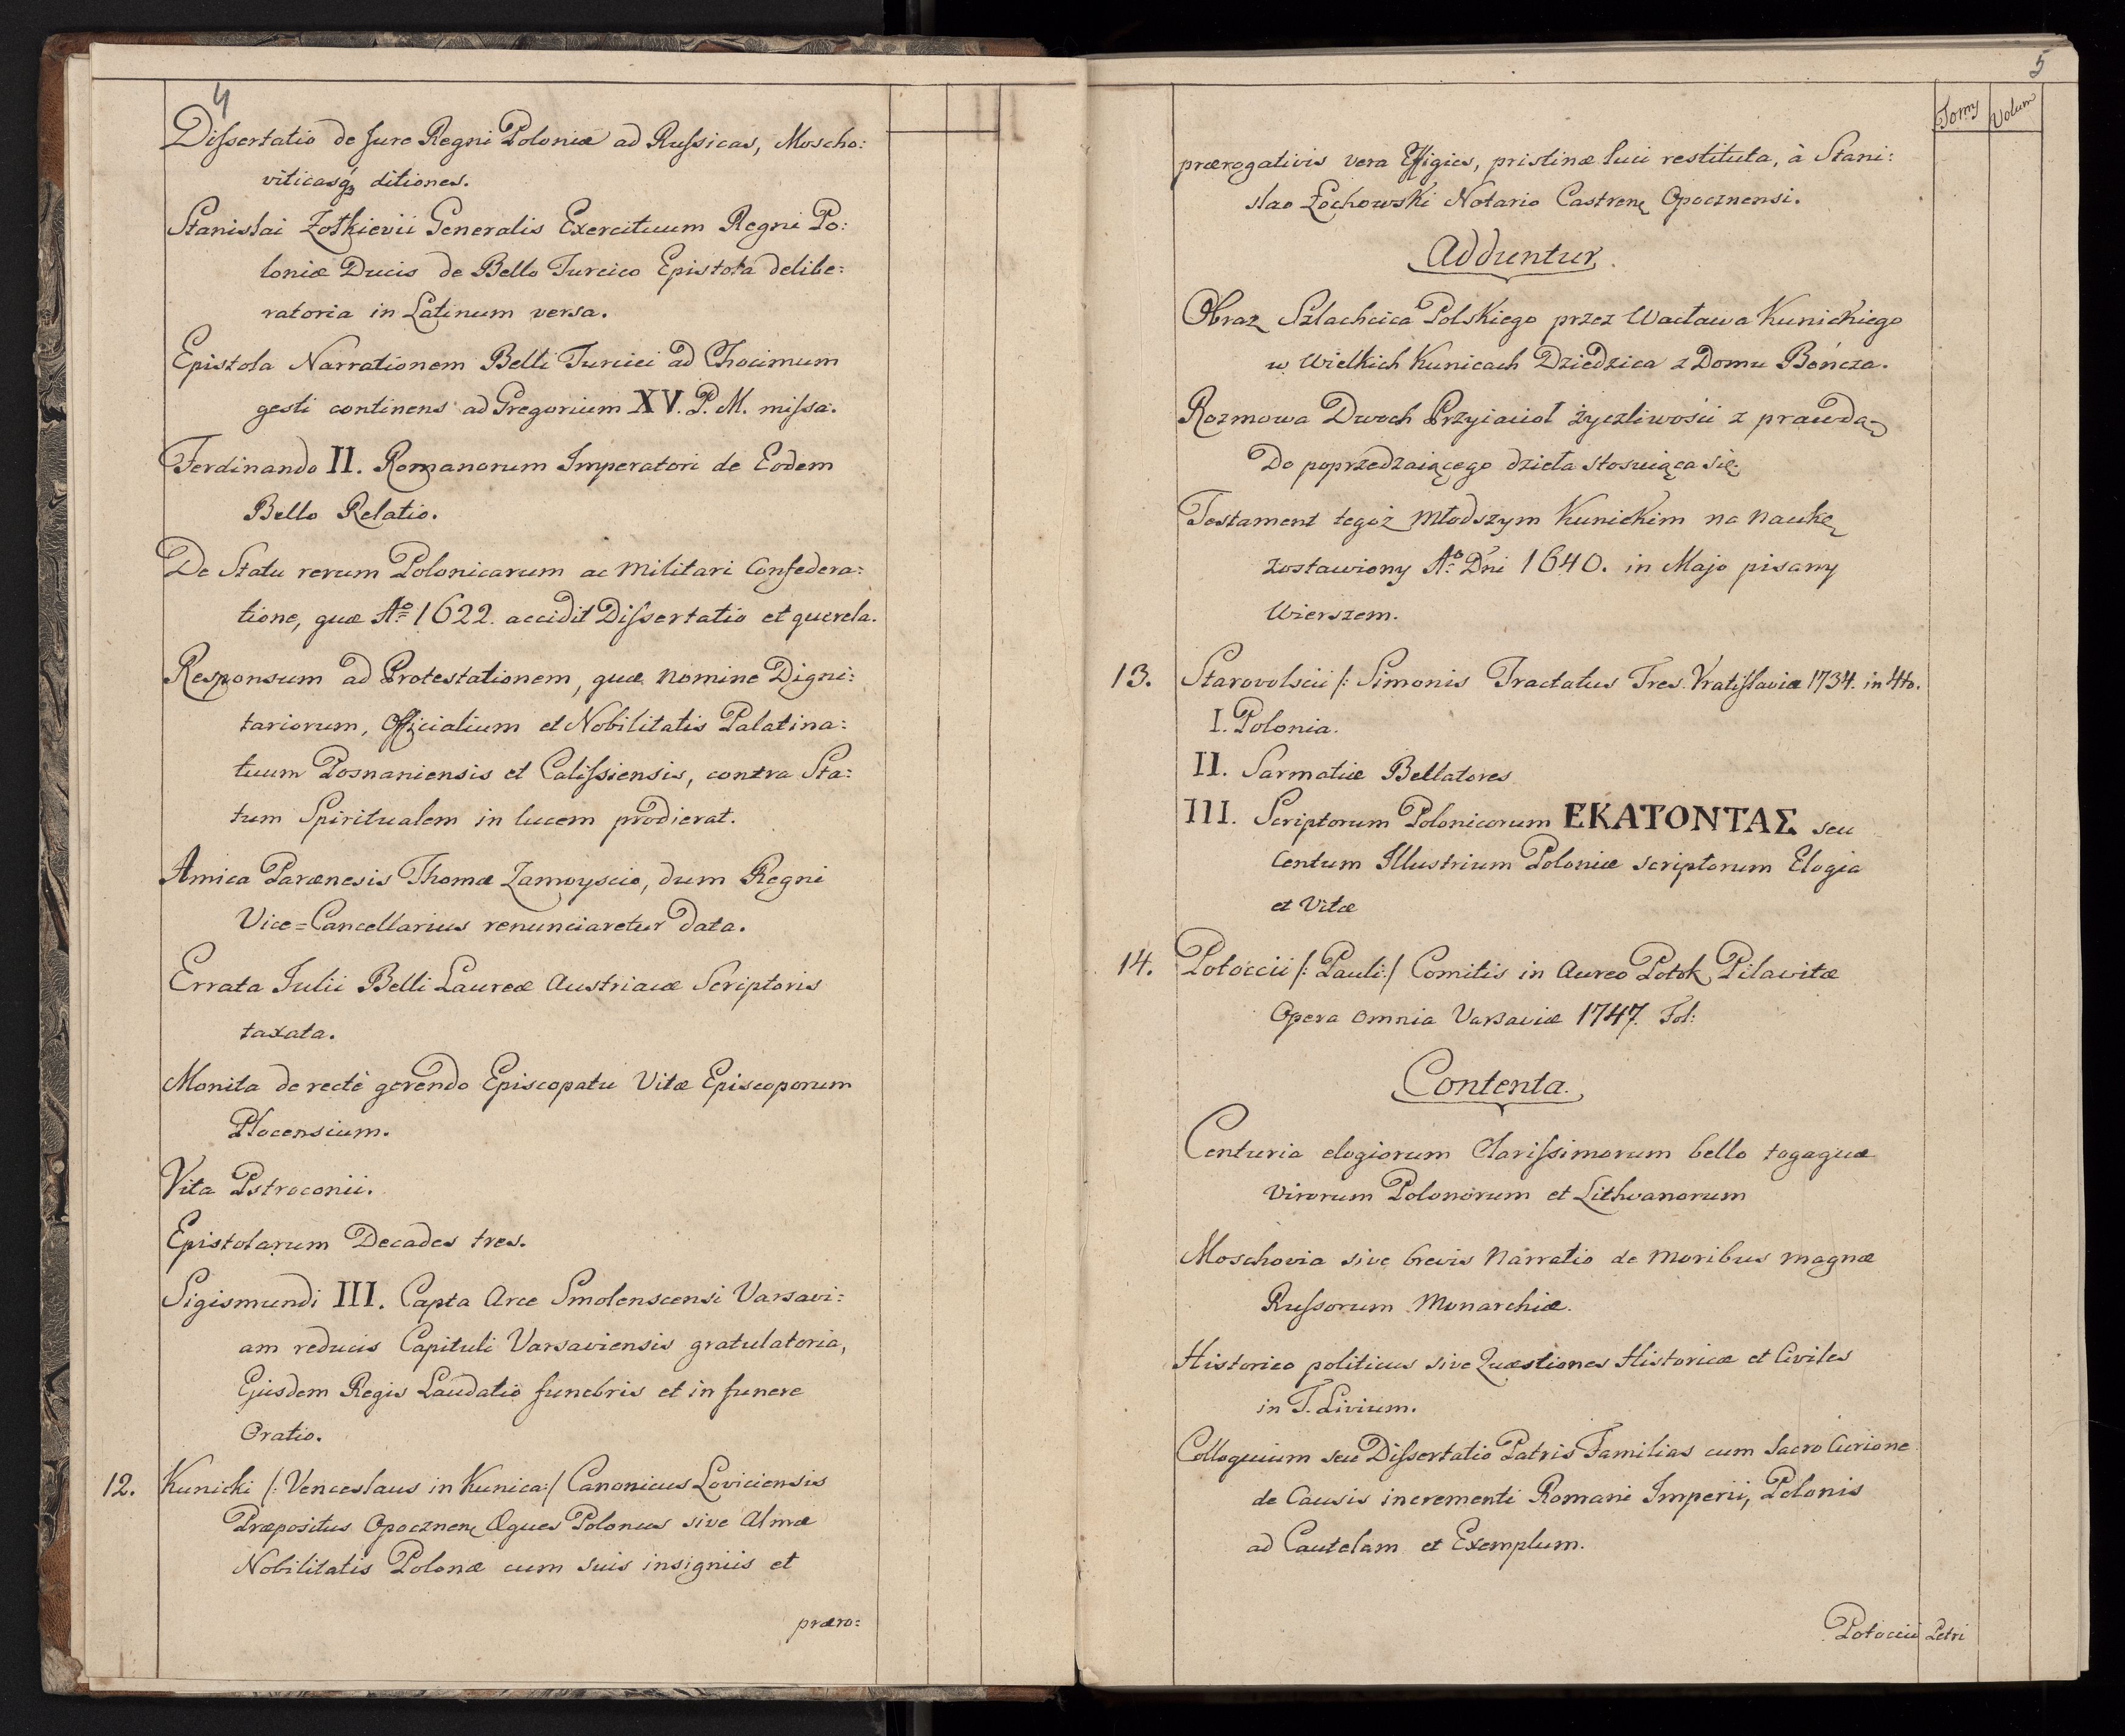 4
Dissertatio de Jure Regni Poloniæ ad Russicas, Moscho:
viticasq́ʒ ditiones.
Stanislai Żołkievii Generalis Exercituum Regni Po:
loniæ Ducis de Bello Turcico Epistola delibe:
ratoria in Latinum versa.
Epistola Narrationem Belli Turcici ad Chocimum
gesti continens ad Gregorium XV. P. M. missa.
Ferdinando II. Romanorum Imperatori de Eodem
Bello Relatio.
De Statu rerum Polonicarum ac militari Confedera:
tione, quæ Aº 1622. accidit Dissertatio et querela.
Responsum ad Protestationem, quæ nomine Digni:
tariorum, Officialium et Nobilitatis Palatina:
tuum Posnaniensis et Calissiensis, contra Sta:
tum Spiritualem in lucem prodierat.
Amica Parænesis Thomæ Zamoyscio, dum Regni
Vice=Cancellarius renunciaretur data.
Errata Julii Belli Laureæ Austriacæ Scriptoris
taxata.
Monita de rectè gerendo Episcopatu Vitæ Episcoporum
Plocensium.
Vita Pstroconii.
Epistolarum Decades tres.
Sigismundi III. Capta Arce Smolenscensi Varsavi:
am reducis Capituli Varsaviensis gratulatoria,
Ejusdem Regis Laudatio funebris et in funere
Oratio.
12. Kunicki /: Venceslaus in Kunica :/ Canonicus Loviciensis
Præpositus Opocznen Æques Polonus sive Almæ
Nobilitatis Polonæ cum suis insigniis et
præro:
5
Tomy Volum
prærogativis vera Effigies, pristinæ luci restituta, à Stani:
slao Łochowski Notario Castren Opocznensi.
Adduntur.
Obraz Szlachcica Polskiego przez Wacława Kunickiego
w Wielkich Kunicach Dziedzica z Domu Bończa.
Rozmowa Dwoch Przyiacioł życzliwości z prawdą
Do poprzedzaiącego dzieła stosuiąca się
Testament tegoż młodszym Kunickim na naukę
zostawiony Aº Dńi 1640. in Majo pisany
Wierszem.
13. Starovolscii /: Simonis Tractatus Tres. Vratislaviæ 1734. in 4to.
I. Polonia.
II. Sarmatiæ Bellatores
III. Scriptorum Polonicorum ΕΚΑΤΟΝΤΑΣ seu
Centum Illustrium Poloniæ scriptorum Elogia
et Vitæ
14. Potoccii /: Pauli :/ Comitis in Aureo Potok Pilavitæ
Opera omnia Varsaviæ 1747. Fol:
Contenta.
Centuria elogiorum Clarissimorum bello togaquæ
Virorum Polonorum et Lithvanorum
Moschovia sive brevis Narratio de moribus magnæ
Russorum Monarchiæ.
Historico politicus sive Quæstiones Historicæ et Civiles
in T. Livium.
Colloquium seu Dissertatio Patris Familias cum Sacro Curione
de Causis incrementi Romani Imperii, Polonis
ad Cautelam et Exemplum.
Potoccii Petri